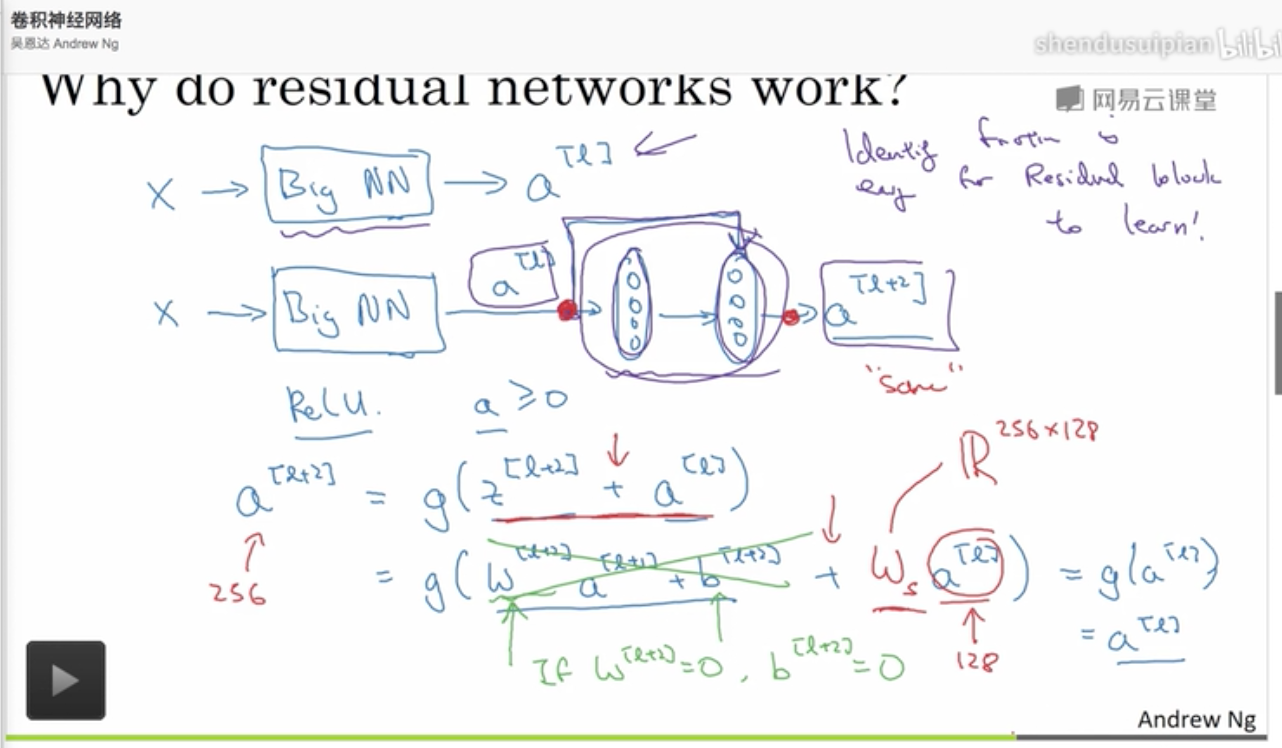 卷积神经网络
吴恩达 Andrew Ng
shendusuipian bilibil
Why do residual networks work?
网易云课堂
X → Big NN → a^[l]
Identity function is
easy for Residual block
to learn!
X → Big NN → a^[l] → → a^[l+2]
"same"
ReLU. a ≥ 0
ℝ^256×128
a^[l+2] = g(z^[l+2] + a^[l])
256
= g(W^[l+2] a^[l+1] + b^[l+2] + W_s a^[l]) = g(a^[l])
= a^[l]
128
If W^[l+2] = 0, b^[l+2] = 0
Andrew Ng